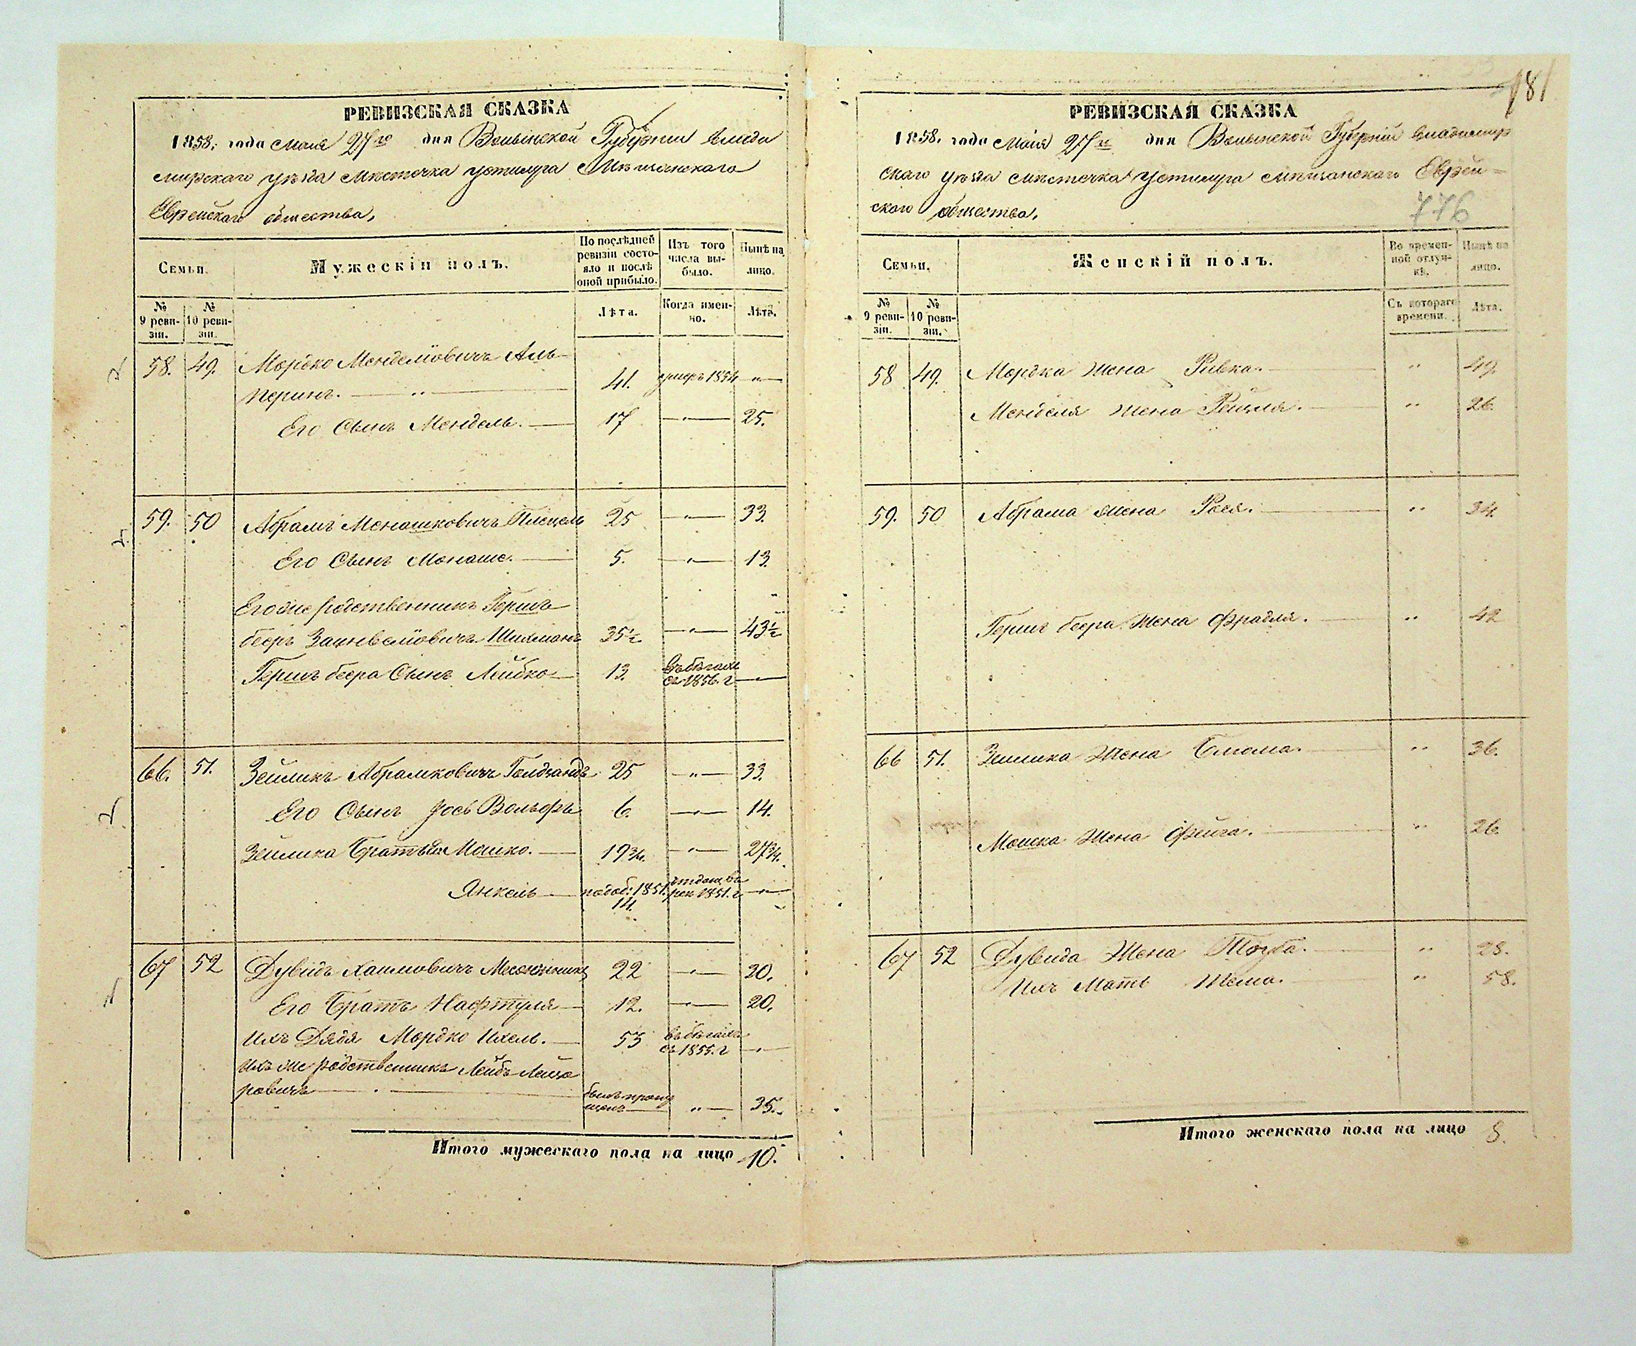 181
РЕВИЗСКАЯ СКАЗКА
1858. года Мая 27го дня Волынской Губернии Влади
мирского уѣзда мѣстечка Устилуга Мѣщанскаго
Еврейскаго общества.
Семьи.
Мужескій полъ.
По послѣдней
ревизіи состо-
яло и послѣ
оной прибыло.
Изъ того
числа вы-
было.
Нынѣ на
лицо.
№
9 реви-
зіи.
№
10 реви-
зіи.
Лѣта.
Когда имен-
но.
Лѣта.
58. 49. Мордко Менделіовичъ Аль-
перинъ. — " — 41. умеръ 1854 — " —
Его Сынъ Мендель. — 17 — " — 25.
59. 50 Абрамъ Менашковичъ 25 — " — 33.
Его Сынъ Менаше. — 5. — " — 13.
Его же родственникъ Гершъ
беръ Зайнвеліовичъ 35½ — " — 43½
Гершъ бера Сынъ Лейбко — 13. въ бѣгахъ
съ 1856. г. —
66. 51. Зейликъ Абрамковичъ 25 — " — 33.
Его Сынъ Іось Вольфъ 6. — " — 14.
Зейлика Братья Мошко. — 19¾. — " — 27¾.
Янкель — 1851. — " —
14. 1851. г
67 52 Дувидъ Хаимовичъ 22 — " — 30.
Его Братъ Нафтула — 12. — " — 20.
Ихъ Дядя Мордко Ихель. — 53 въ бѣгахъ
съ 1855. г — " —
Ихъ же родственникъ Лейбъ Лейзо
ровичъ — былъ пропу
щенъ — " — 35.
Итого мужескаго пола на лицо 10.
РЕВИЗСКАЯ СКАЗКА
1858. года Мая 27го дня Волынской Губерніи Владимир
скаго уѣзда мѣстечка Устилуга мѣщанскаго Еврей-
скаго общества.
776
Семьи.
Женскій полъ.
Во времен-
ной отлуч-
кѣ.
Нынѣ на
лицо.
№
9 реви-
зіи.
№
10 реви-
зіи.
Съ котораго
времени.
Лѣта.
58 49. Мордка жена Ривка. — " 49.
Менделя жена Рейзля. — " 26.
59. 50 Абрама жена Рася. — " 34.
Гершъ бера Жена Фрадля. — " 42
66 51. Зейлика Жена Блюма. — " 36.
Мошка Жена Фейга. — " 26.
67 52 Дувида Жена Тауба. — " 28.
Ихъ Мать — " 58.
Итого женскаго пола на лицо 8.